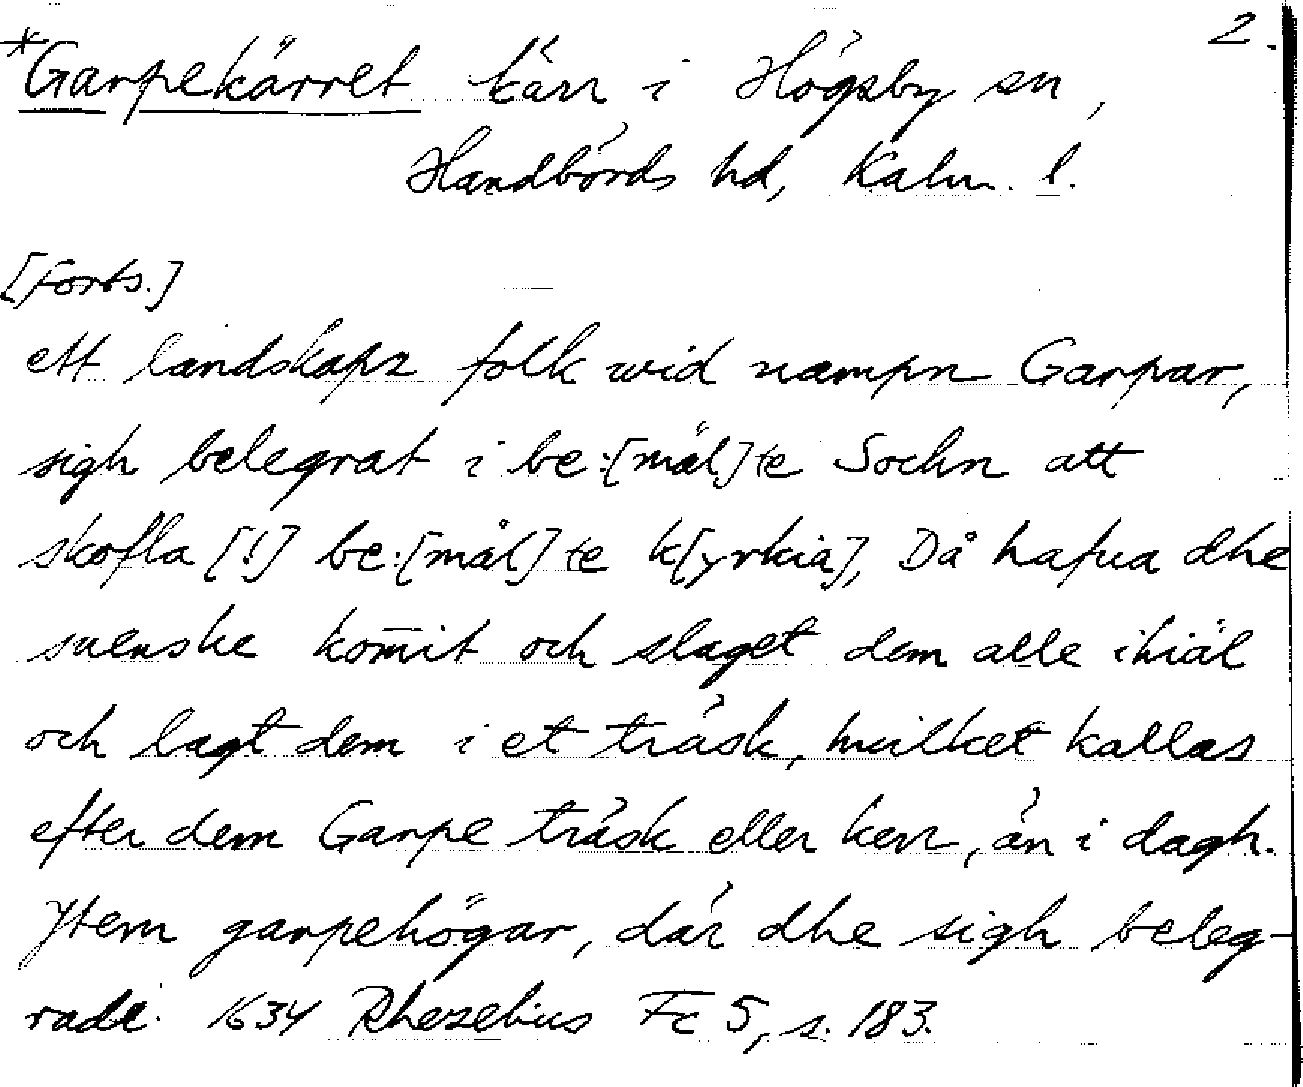 2.
*Garpekärret kärr i Högsby sn,
Handbörds hd, Kalm. l.
[forts.]
ett landskapz folk wid nampn Garpar,
sigh belegrat i be:[mäl]te Sochn att
skofla [!] be:[mål]te k[yrkia], Då hafua dhe
suenske kom̄it och slaget dem alle ihiäl
och lagt dem i et träsk, huilket kallas
efter dem Garpe träsk eller kerr, än i dagh.
Ytem garpehögar, där dhe sigh beleg-
rade. 1634 Rhezelius Fc 5, s. 183.